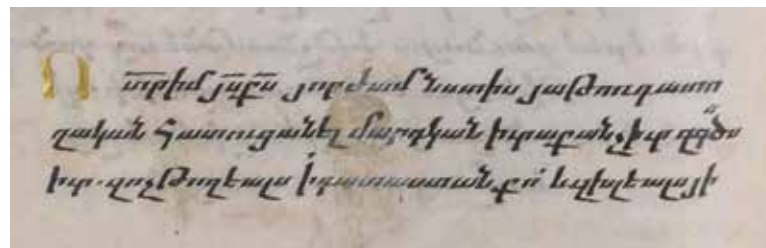 Ո տր իմ յս քս յորժամ նստիս յաթոռ դատո
ղական հատուցանել մարդկան իւրաքանչիւր զգծս
իւր. զոչ թողեալս ի դատաստան քո